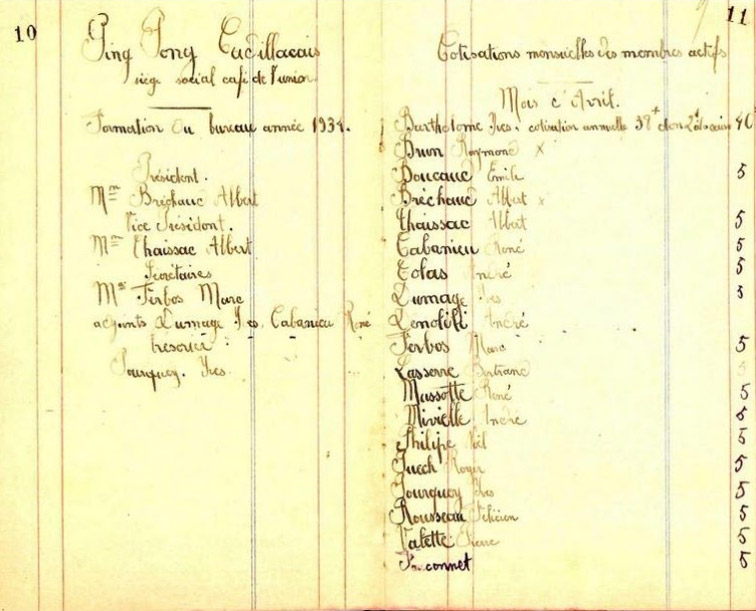 10
Ping Pong Cadillacais
siège social café de l'union
Formation du bureau année 1934.
Président.
Mr Bréchaud Albert
Vice Président.
Mr Chaissac Albert
Secrétaires
Mr Ferbos Marc
adjoints Dumage Yves, Cabanieu René
tresorier :
Pourquey. Yves
11
Cotisations mensuelles des membres actifs
Mois d'Avril.
Bartholome Yves. cotisation annuelle 38 40
Brun Raymond x
Boucaud Emile 5
Bréchaud Albert x
Chaissac Albert 5
Cabanieu René 5
Colas André 5
Dumage Yves 5
André
Ferbos Marc 5
Lasserre Bertrand 5
Massotte René 5
Mivielle André 5
Philipe Noël 5
Puech Roger 5
Pourquey Yves 5
Rousseau Félicien 5
Valette Pierre 5
5